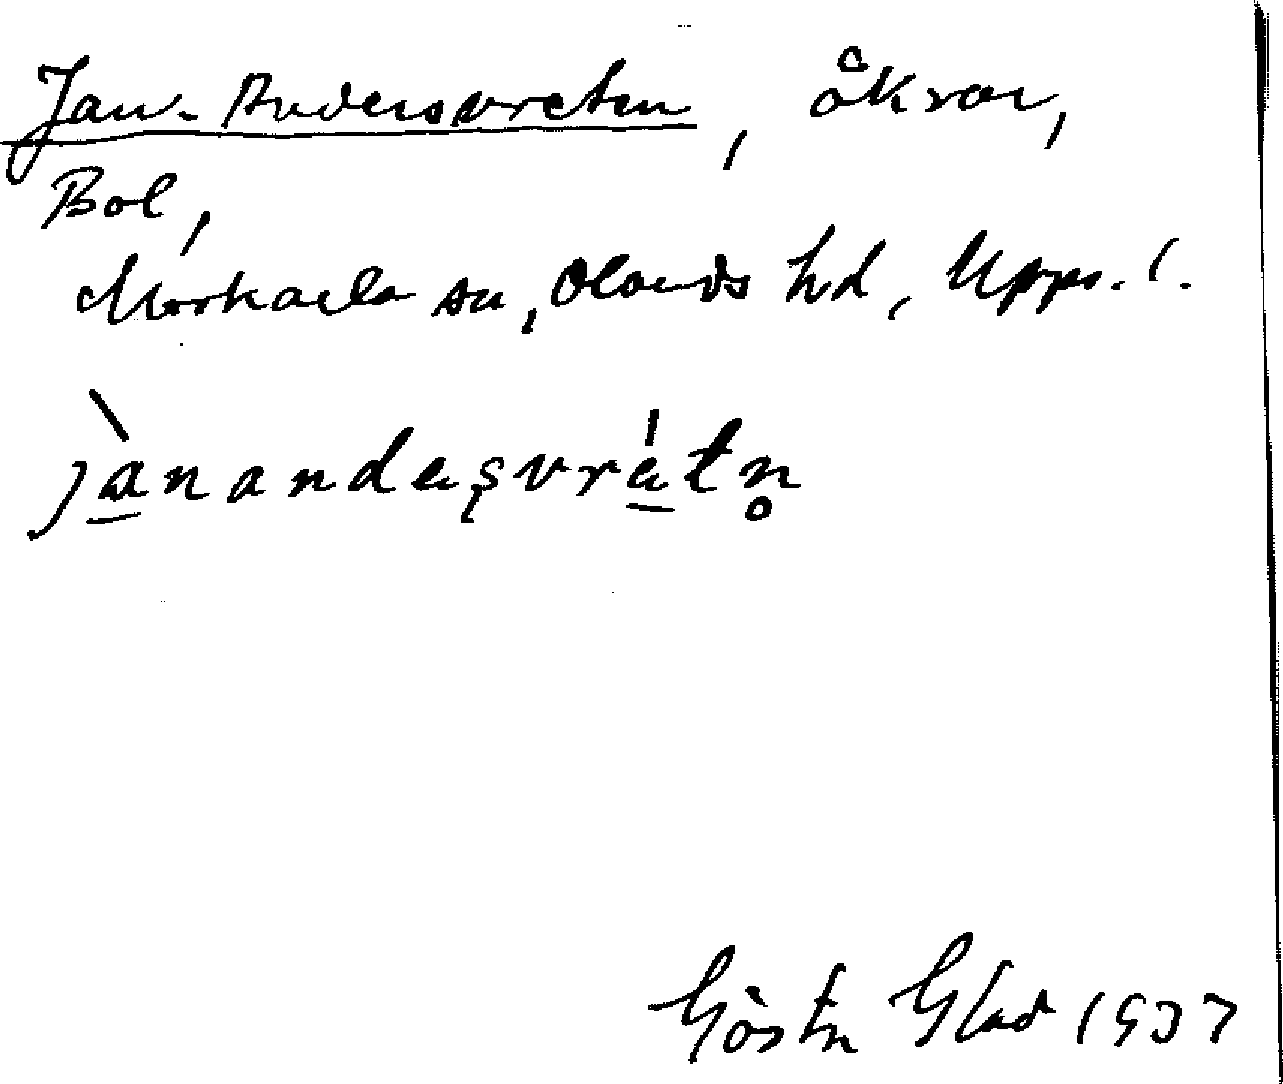 Jan-Andersvreten, åkrar,
Bol,
Morkarla sn, Olands hd, Upps. l.
jànandaşvrátn̥
Gösta Glad 1937